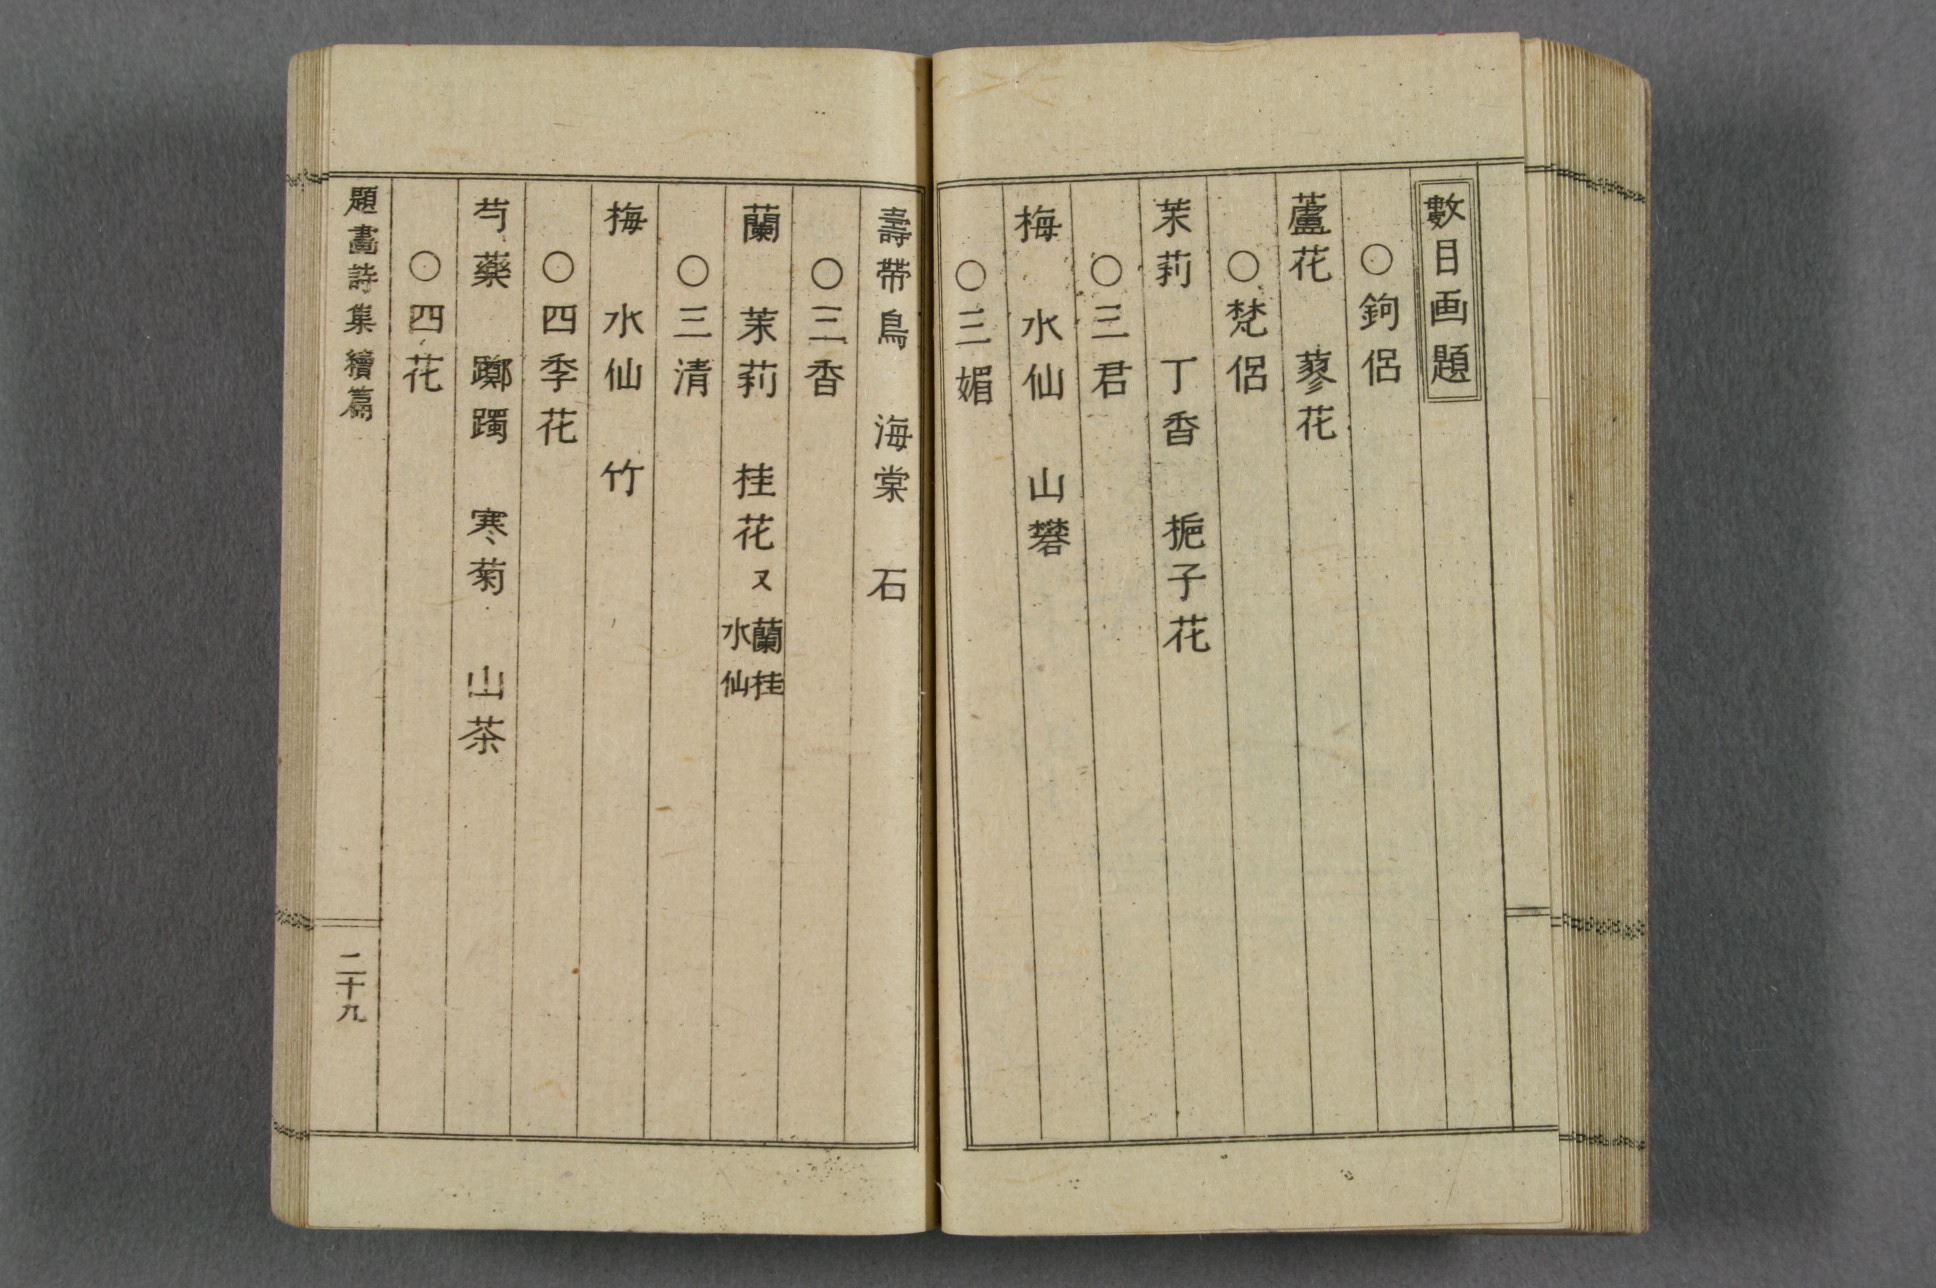 數目画題
○鉤侶
蘆花　蓼花
○梵侶
茉莉　丁香　梔子花
○三君
梅　水仙　山礬
○三媚
壽帶鳥　海棠　石
○三香
蘭　茉莉　桂花又蘭桂水仙
○三清
梅　水仙　竹
○四季花
芍藥　躑躅　寒菊　山茶
○四花
題畵詩集續篇　二十九